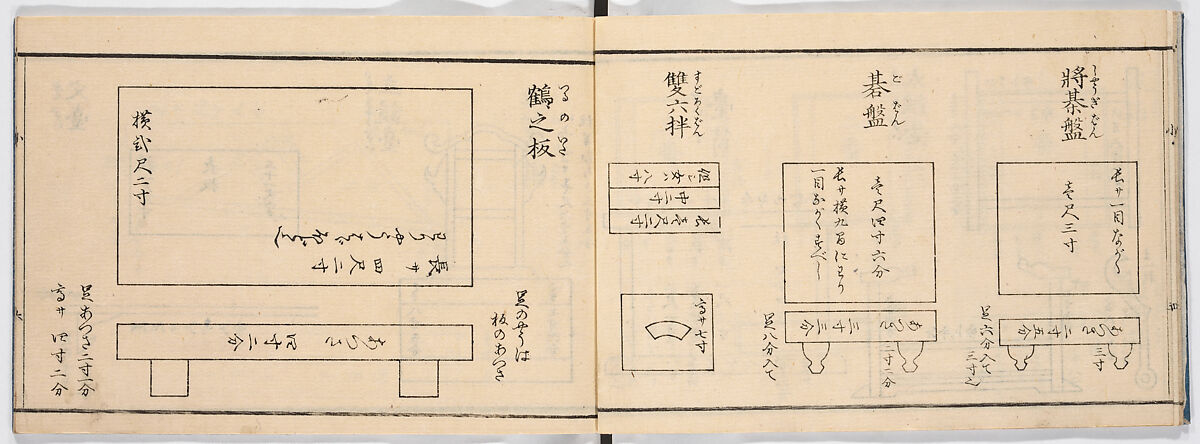 將棊盤
しやうぎばん
長サ一目ながく
壱尺三寸
あつさ 三寸五分
三寸
足六分入て
三寸也
碁盤
ごばん
壱尺四寸六分
長サ横九目にわり
一目ながくすべし
あつさ 三寸三分
二寸二分
足八分入て
雙六拌
すごろくばん
中二寸
高サ七寸
鶴之板
つるのいた
横弐尺二寸
長サ 四尺二寸
足のやうは
板のあつさ
あつさ 四寸三分
足あつさ二寸一分
高サ 四寸二分